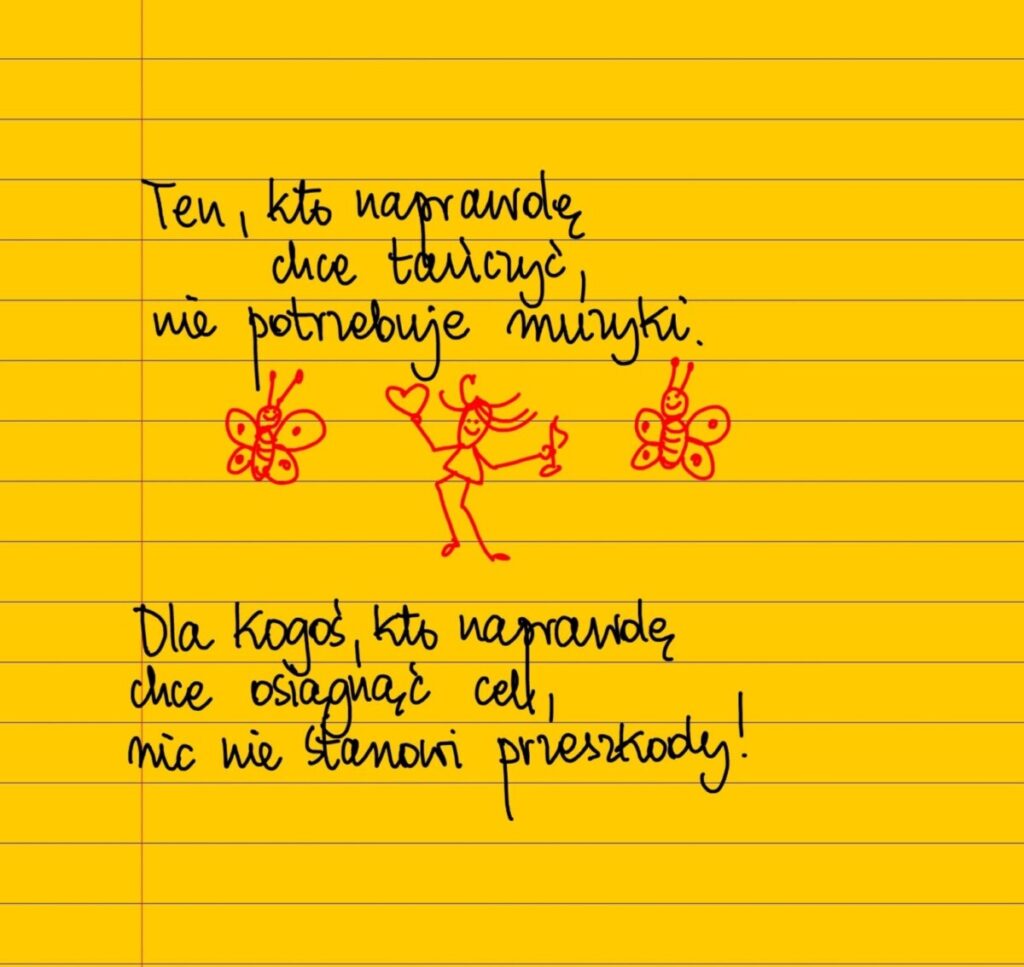 Ten, kto naprawdę
chce tańczyć,
nie potrzebuje muzyki.
Dla kogoś, kto naprawdę
chce osiągnąć cel,
nic nie stanowi przeszkody!